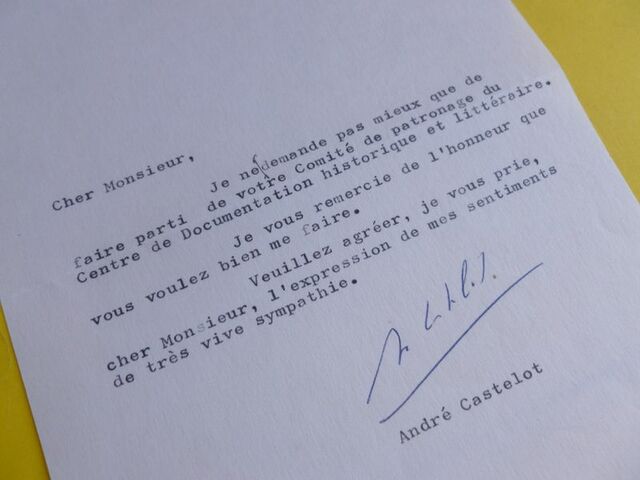 Cher Monsieur,
Je ne demande pas mieux que de
faire parti de votre Comité de patronage du
Centre de Documentation historique et littéraire.
Je vous remercie de l'honneur que
vous voulez bien me faire.
Veuillez agréer, je vous prie,
cher Monsieur, l'expression de mes sentiments
de très vive sympathie.
André Castelot